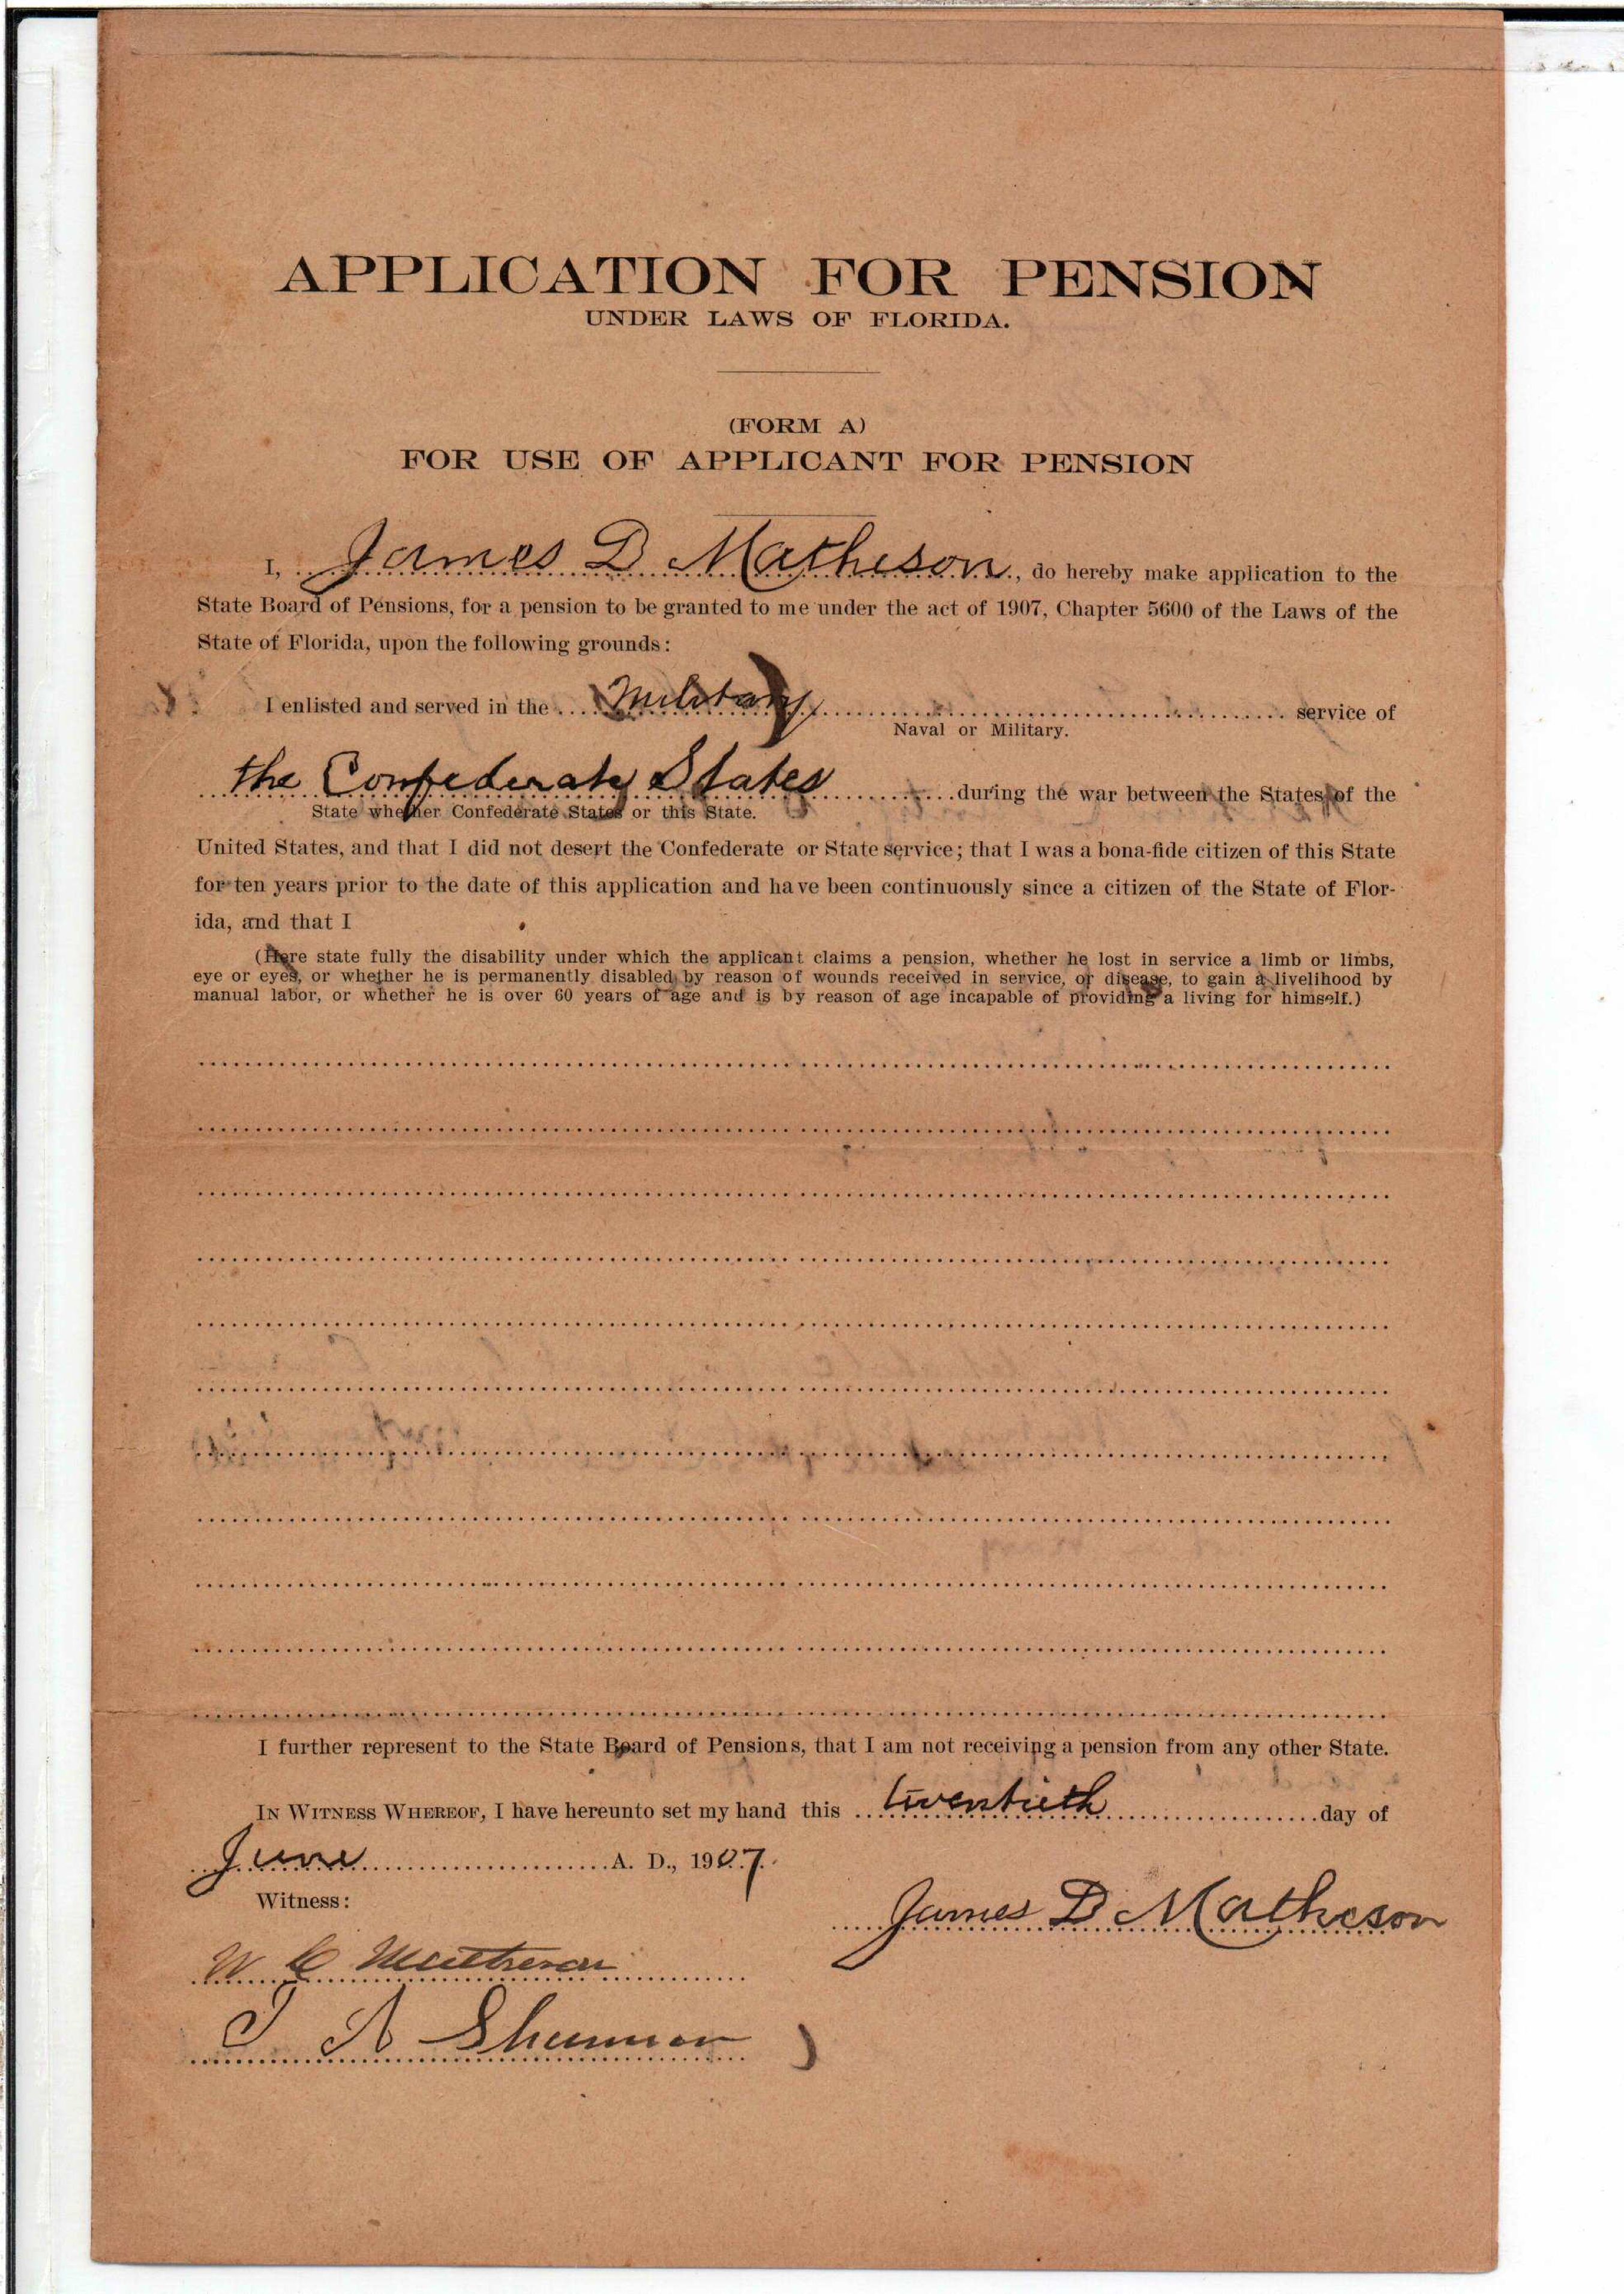 APPLICATION FOR PENSION
UNDER LAWS OF FLORIDA.
(FORM A)
FOR USE OF APPLICANT FOR PENSION
I, James D Matheson, do hereby make application to the
State Board of Pensions, for a pension to be granted to me under the act of 1907, Chapter 5600 of the Laws of the
State of Florida, upon the following grounds:
I enlisted and served in the Military service of
Naval or Military.
the Confederate States during the war between the States of the
State whether Confederate States or this State.
United States, and that I did not desert the Confederate or State service; that I was a bona-fide citizen of this State
for ten years prior to the date of this application and have been continuously since a citizen of the State of Flor-
ida, and that I
(Here state fully the disability under which the applicant claims a pension, whether he lost in service a limb or limbs,
eye or eyes, or whether he is permanently disabled by reason of wounds received in service, or disease, to gain a livelihood by
manual labor, or whether he is over 60 years of age and is by reason of age incapable of providing a living for himself.)
I further represent to the State Board of Pensions, that I am not receiving a pension from any other State.
IN WITNESS WHEREOF, I have hereunto set my hand this twentieth day of
June A. D., 1907.
Witness:
James D Matheson
W C